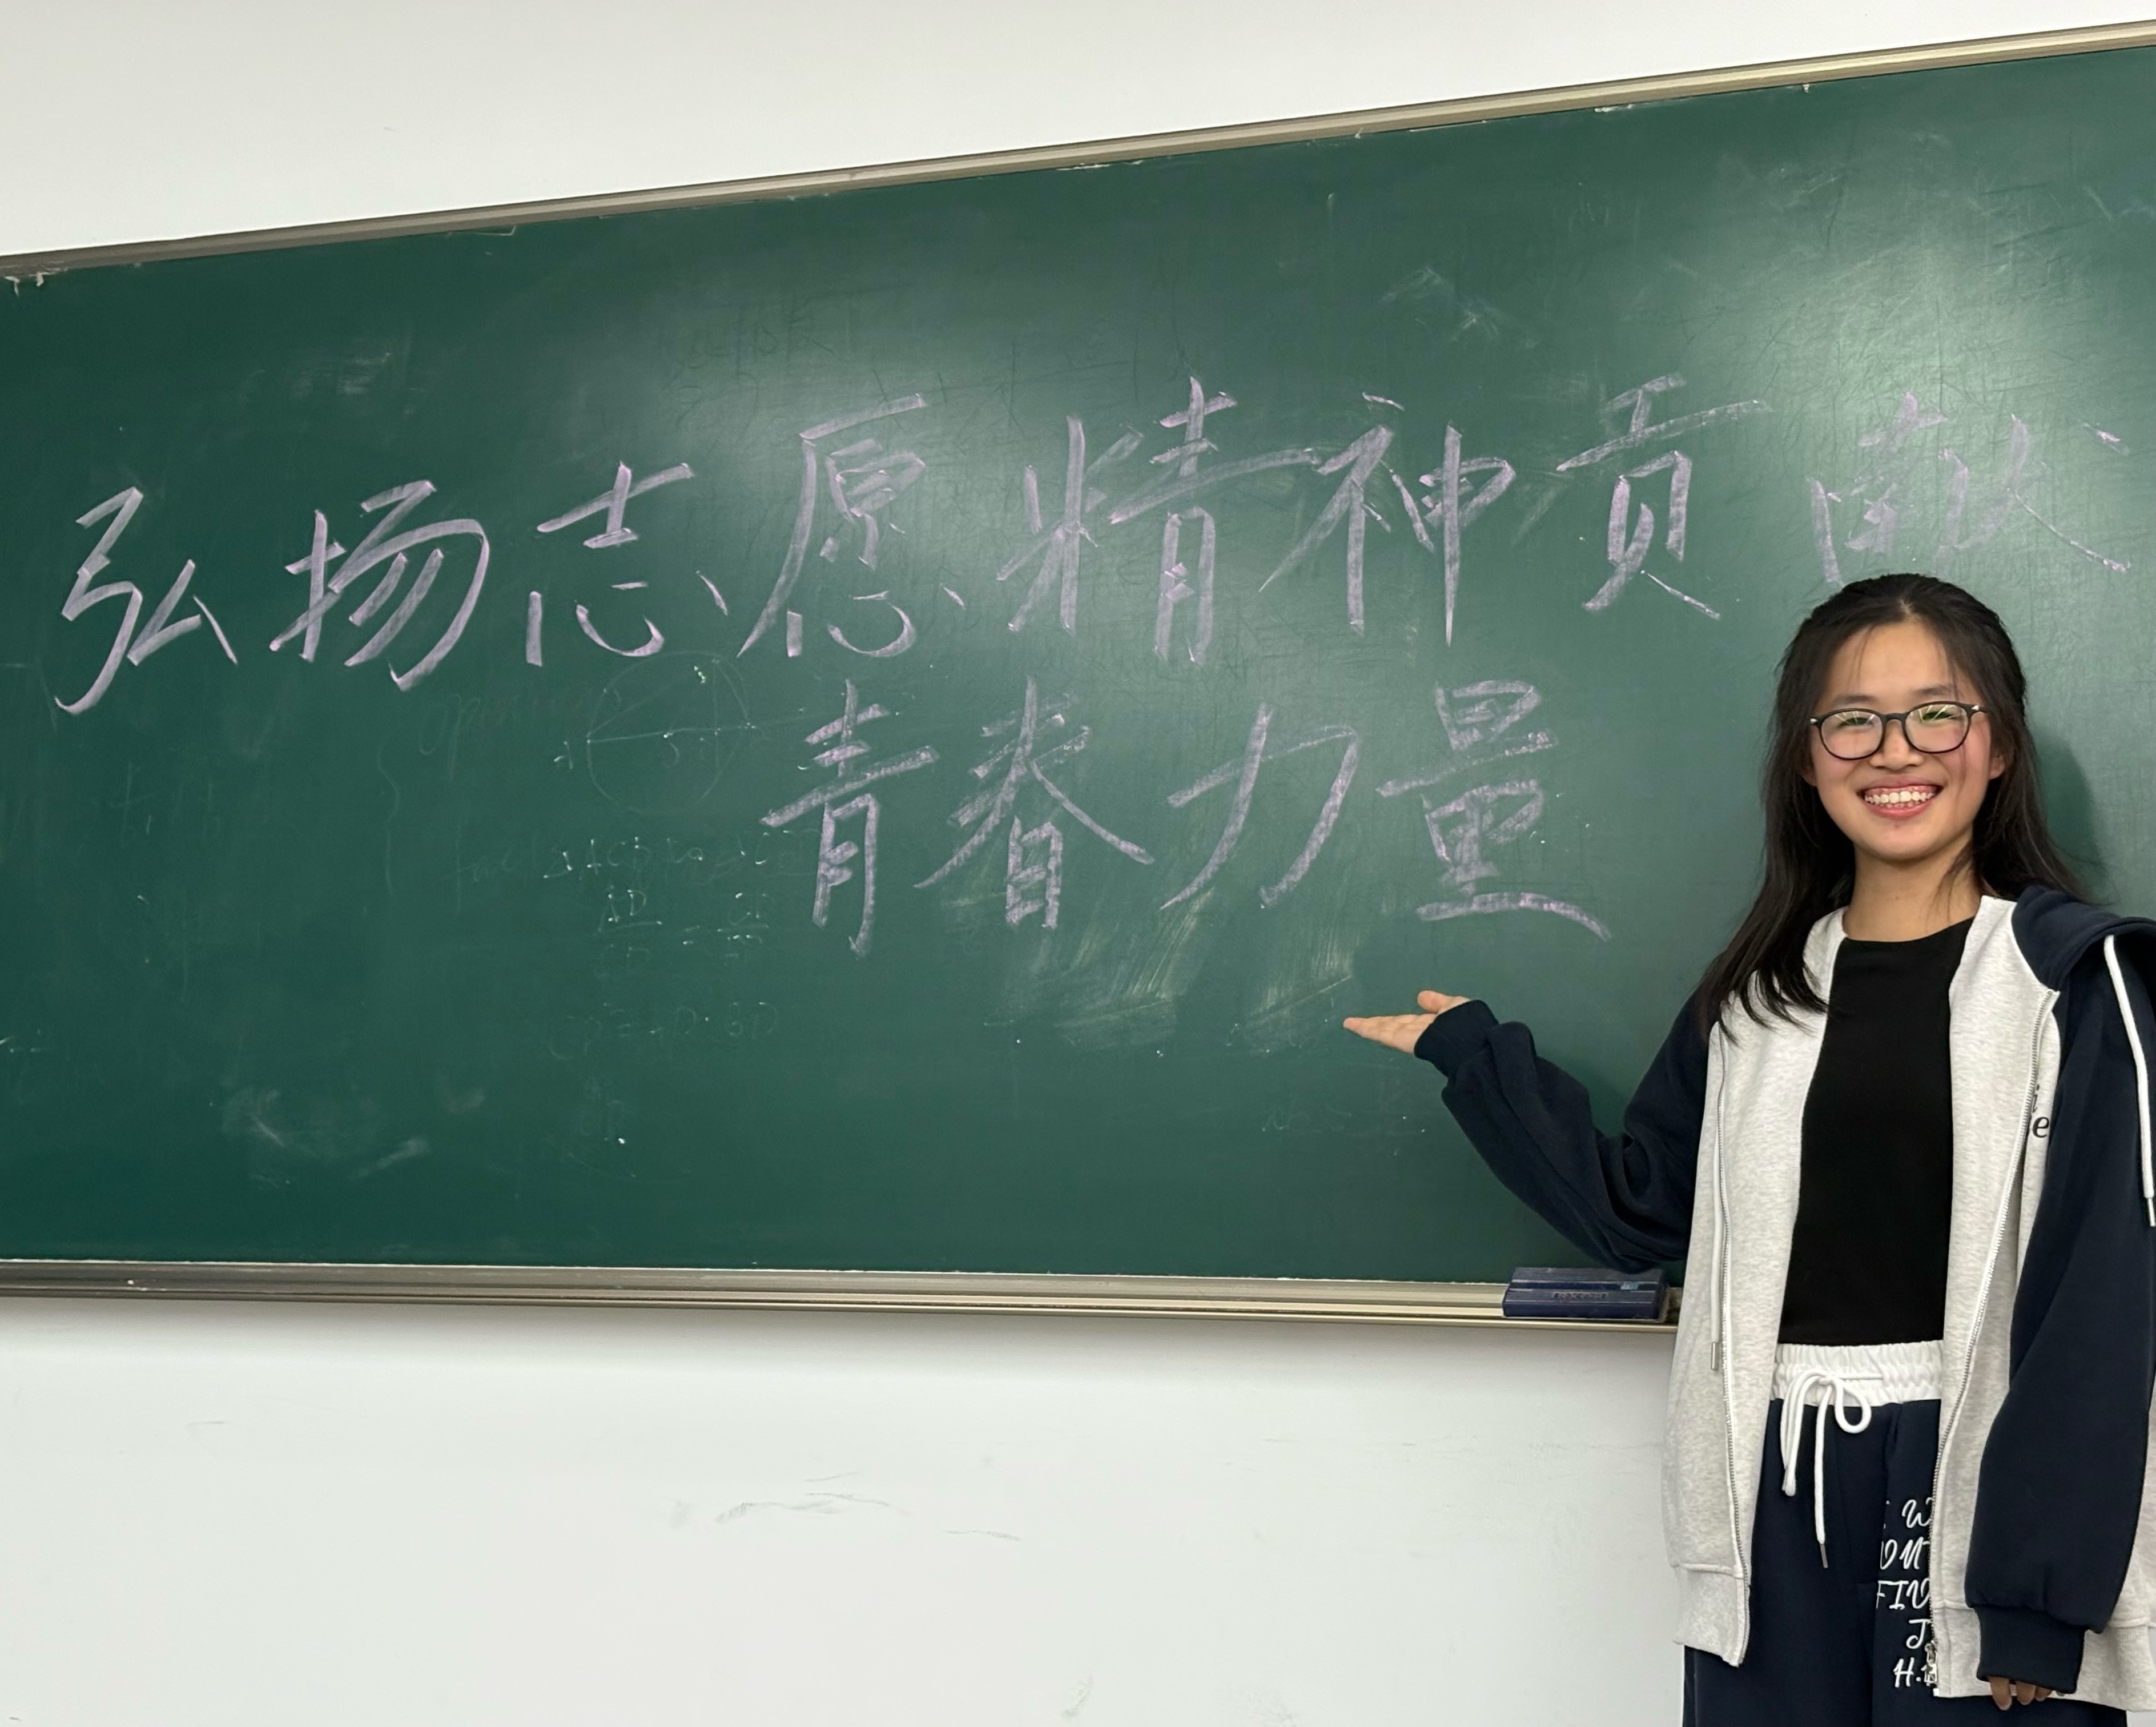 弘扬志愿精神贡献
青春力量
W
ON
FIV
J
H.